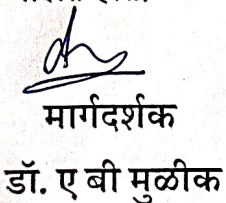 मार्गदर्शक
डॉ. ए बी मुळीक